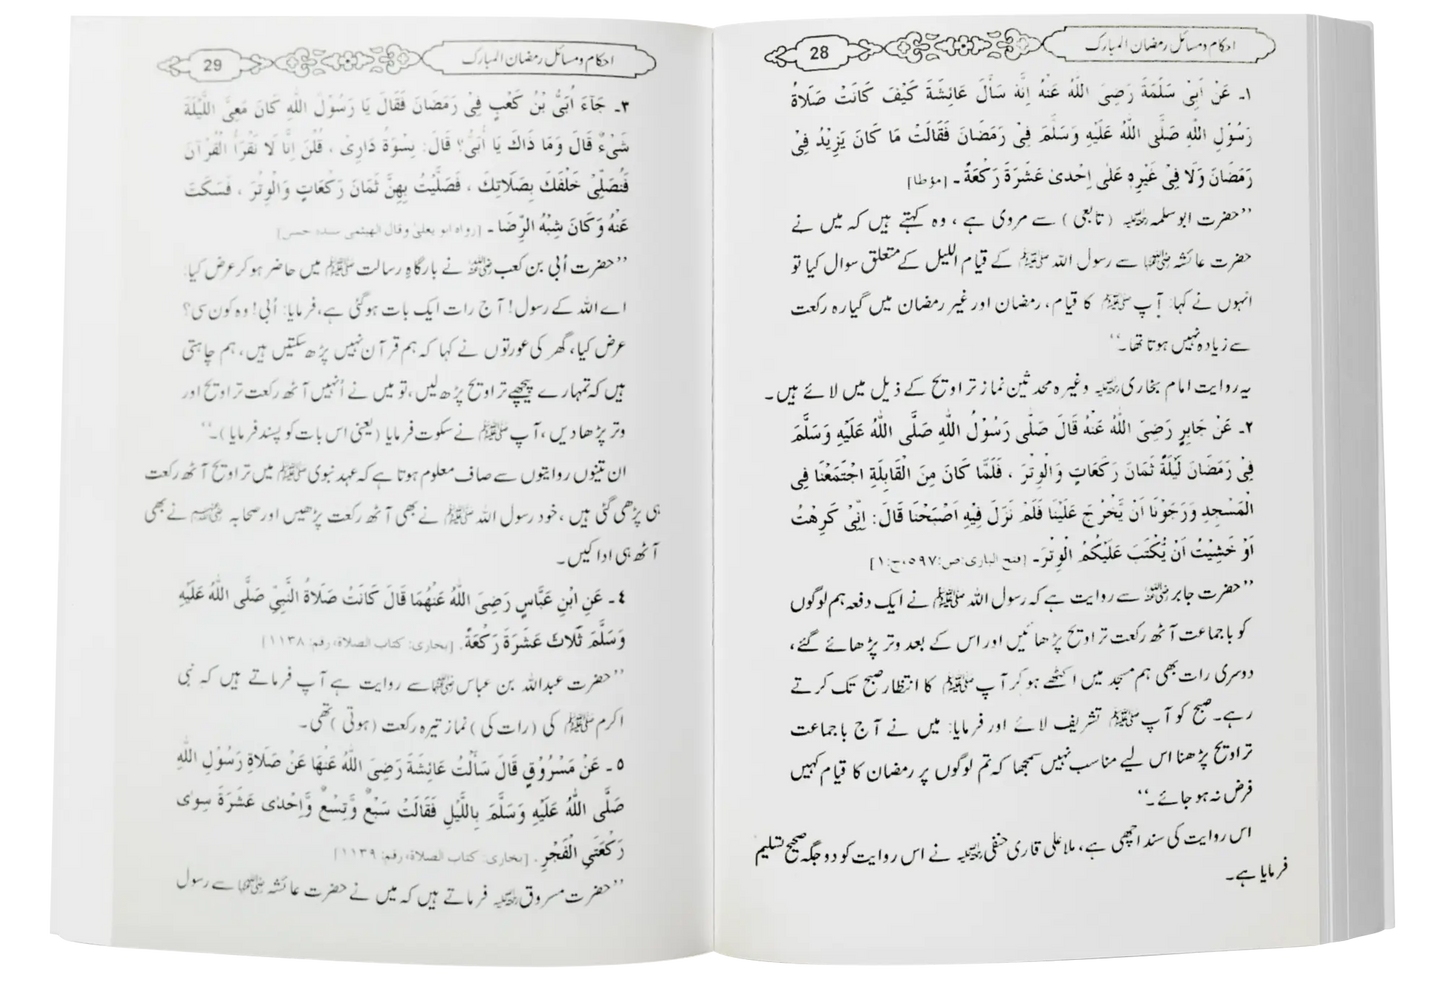 احکام و مسائل رمضان المبارک
28
۱۔ عَنْ اَبِیْ سَلَمَةَ رَضِیَ اللّٰهُ عَنْهُ اِنَّهٗ سَأَلَ عَائِشَةَ كَیْفَ كَانَتْ صَلَاةُ
رَسُوْلِ اللّٰهِ صَلَّی اللّٰهُ عَلَیْهِ وَسَلَّمَ فِیْ رَمَضَانَ فَقَالَتْ مَا كَانَ یَزِیْدُ فِیْ
رَمَضَانَ وَلَا فِیْ غَیْرِهٖ عَلٰی اِحْدیٰ عَشَرَةَ رَكْعَةً ۔ [مؤطا]
’’حضرت ابو سلمہ رحمۃ اللہ علیہ (تابعی) سے مروی ہے ، وہ کہتے ہیں کہ میں نے
حضرت عائشہ رضی اللہ عنہا سے رسول اللہ ﷺ کے قیام اللیل کے متعلق سوال کیا تو
انہوں نے کہا: آپ ﷺ کا قیام، رمضان اور غیر رمضان میں گیارہ رکعت
سے زیادہ نہیں ہوتا تھا۔‘‘
یہ روایت امام بخاری رحمۃ اللہ علیہ وغیرہ محدثین نماز تراویح کے ذیل میں لائے ہیں۔
۲۔ عَنْ جَابِرٍ رَضِیَ اللّٰهُ عَنْهُ قَالَ صَلّٰی رَسُوْلُ اللّٰهِ صَلَّی اللّٰهُ عَلَیْهِ وَسَلَّمَ
فِیْ رَمَضَانَ لَیْلَةً ثَمَانَ رَكَعَاتٍ وَالْوِتْرَ ، فَلَمَّا كَانَ مِنَ الْقَابِلَةِ اجْتَمَعْنَا فِی
الْمَسْجِدِ وَرَجَوْنَا اَنْ یَّخْرُجَ عَلَیْنَا فَلَمْ نَزَلْ فِیْهِ اَصْبَحْنَا قَالَ: اِنِّیْ كَرِهْتُ
اَوْ خَشِیْتُ اَنْ یُّكْتَبَ عَلَیْكُمُ الْوِتْرَ۔ [فتح الباری:ص:۵۹۷،ج:۱]
’’حضرت جابر رضی اللہ عنہ سے روایت ہے کہ رسول اللہ ﷺ نے ایک دفعہ ہم لوگوں
کو باجماعت آٹھ رکعت تراویح پڑھائیں اور اس کے بعد وتر پڑھائے گئے،
دوسری رات بھی ہم مسجد میں اکٹھے ہو کر آپ ﷺ کا انتظار صبح تک کرتے
رہے۔ صبح کو آپ ﷺ تشریف لائے اور فرمایا: میں نے آج باجماعت
تراویح پڑھنا اس لیے مناسب نہیں سمجھا کہ تم لوگوں پر رمضان کا قیام کہیں
فرض نہ ہو جائے۔‘‘
اس روایت کی سند اچھی ہے، ملا علی قاری حنفی رحمۃ اللہ علیہ نے اس روایت کو دو جگہ صحیح تسلیم
فرمایا ہے۔
احکام و مسائل رمضان المبارک
29
۳۔ جَآءَ اُبَیُّ بْنُ كَعْبٍ فِیْ رَمَضَانَ فَقَالَ یَا رَسُوْلَ اللّٰهِ كَانَ مَعِیَّ اللَّیْلَةَ
شَیْءٌ قَالَ وَمَا ذَاكَ یَا اُبَیُّ؟ قَالَ: بِسْوَةُ دَارِیْ ، قُلْنَ اِنَّا لَا نَقْرَأُ الْقُرْآنَ
فَنُصَلِّیْ خَلْفَكَ بِصَلَاتِكَ ، فَصَلَّیْتُ بِهِنَّ ثَمَانَ رَكَعَاتٍ وَالْوِتْرَ ، فَسَكَتَ
عَنْهُ وَكَانَ شِبْهُ الرِّضَا ۔ [رواه ابو یعلیٰ وقال الهیثمی سنده حسن]
’’حضرت اُبی بن کعب رضی اللہ عنہ نے بارگاہِ رسالت ﷺ میں حاضر ہو کر عرض کیا:
اے اللہ کے رسول! آج رات ایک بات ہوگئی ہے، فرمایا: اُبی! وہ کون سی؟
عرض کیا، گھر کی عورتوں نے کہا کہ ہم قرآن نہیں پڑھ سکتیں ہیں، ہم چاہتی
ہیں کہ تمہارے پیچھے تراویح پڑھ لیں، تو میں نے اُنہیں آٹھ رکعت تراویح اور
وتر پڑھا دیں، آپ ﷺ نے سکوت فرمایا (یعنی اس بات کو پسند فرمایا)۔‘‘
ان تینوں روایتوں سے صاف معلوم ہوتا ہے کہ عہد نبوی ﷺ میں تراویح آٹھ رکعت
ہی پڑھی گئی ہیں ، خود رسول اللہ ﷺ نے بھی آٹھ رکعت پڑھیں اور صحابہ رضی اللہ عنہم نے بھی
آٹھ ہی ادا کیں۔
۴۔ عَنِ ابْنِ عَبَّاسٍ رَضِیَ اللّٰهُ عَنْهُمَا قَالَ كَانَتْ صَلَاةُ النَّبِیِّ صَلَّی اللّٰهُ عَلَیْهِ
وَسَلَّمَ ثَلَاثَ عَشَرَةَ رَكْعَةً. [بخاری: كتاب الصلاة، رقم: ۱۱۳۸]
’’حضرت عبداللہ بن عباس رضی اللہ عنہما سے روایت ہے آپ فرماتے ہیں کہ نبی
اکرم ﷺ کی (رات کی) نماز تیرہ رکعت (ہوتی) تھی۔
۵۔ عَنْ مَسْرُوْقٍ قَالَ سَأَلْتُ عَائِشَةَ رَضِیَ اللّٰهُ عَنْهَا عَنْ صَلَاةِ رَسُوْلِ اللّٰهِ
صَلَّی اللّٰهُ عَلَیْهِ وَسَلَّمَ بِاللَّیْلِ فَقَالَتْ سَبْعٌ وَّتِسْعٌ وَّاِحْدٰی عَشَرَةَ سِوٰی
رَكْعَتَیِ الْفَجْرِ. [بخاری: كتاب الصلاة، رقم: ۱۱۳۹]
’’حضرت مسروق رحمۃ اللہ علیہ فرماتے ہیں کہ میں نے حضرت عائشہ رضی اللہ عنہا سے رسول